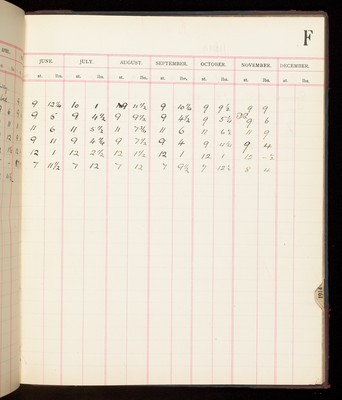 F
APRIL. JUNE. JULY. AUGUST. SEPTEMBER. OCTOBER. NOVEMBER. DECEMBER.
st. lbs. st. lbs. st. lbs. st. lbs. st. lbs. st. lbs. st. lbs.
9 10 1 9 11½ 9 9 9½ 9 9
9 5 9 4½ 9 9½ 9 4½ 9 9 6
11 6 11 5½ 11 11 6 11 11 9
9 11 9 9 7½ 9 4 9 9 4
12 1 12 2½ 12 1½ 12 1 12 1 12
7 11½ 7 12 7 12 7 9½ 7 8 4
1914